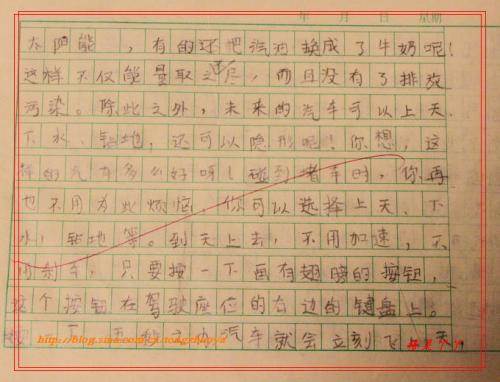 年 月 日 星期
太阳能，有的还把汽油换成了牛奶呢！
这样不仅能量取之不尽，而且没有了排放
污染。除此之外，未来的汽车可以上天、
下水、钻地，还可以隐形呢！你想，这
样的汽车多么好呀！碰到堵车时，你再
也不用为此烦恼，你可以选择上天、下
水，钻地等。到天上去，不用加速，不
用刹车，只要按一下画有翅膀的按钮，
这个按钮在驾驶座位的右边的键盘上。
按一下，汽车就会立刻飞